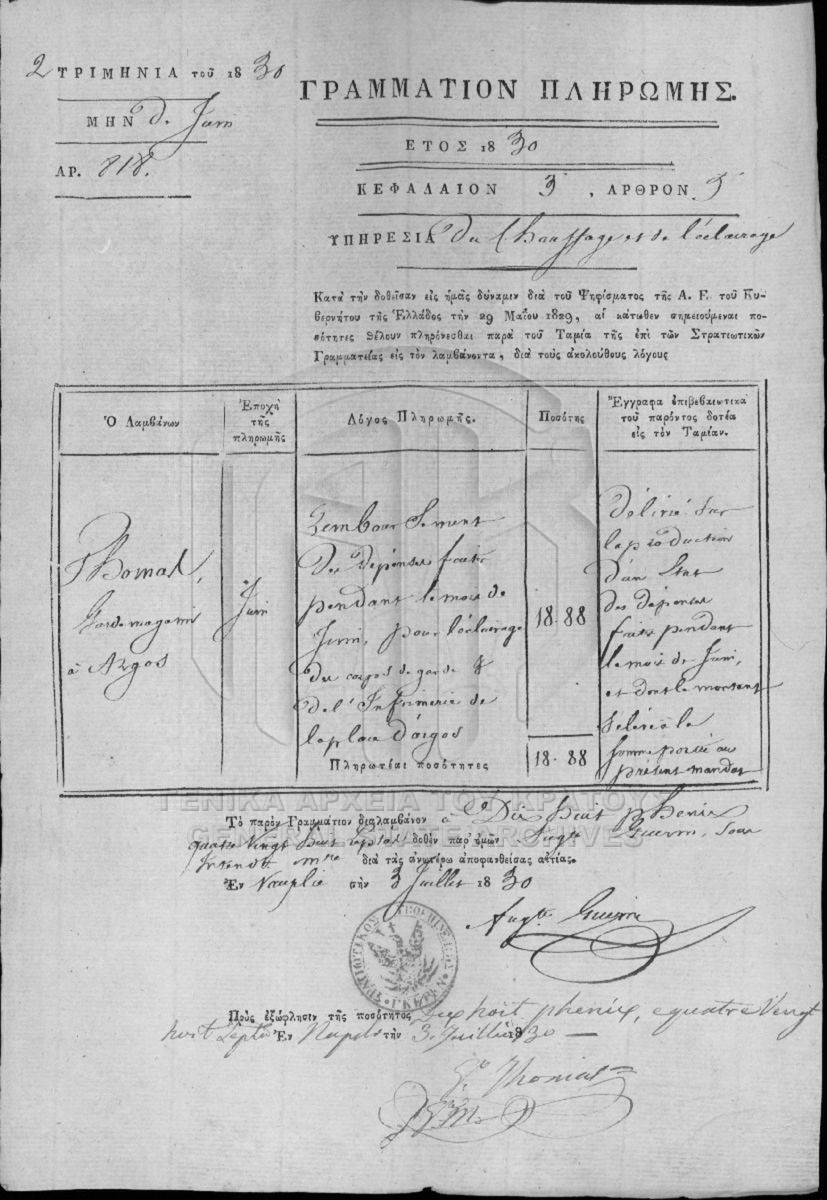 2 ΤΡΙΜΗΝΙΑ τοῦ 1830
ΜΗΝ d. Juin
ΑΡ. 818.
ΓΡΑΜΜΑΤΙΟΝ ΠΛΗΡΩΜΗΣ.
ΕΤΟΣ 1830
ΚΕΦΑΛΑΙΟΝ 3, ΑΡΘΡΟΝ 5
ΥΠΗΡΕΣΙΑ du Chauffage et de l'éclairage
Κατὰ τὴν δοθεῖσαν εἰς ἡμᾶς δύναμιν διὰ τοῦ Ψηφίσματος τῆς Α. Ε. τοῦ Κυ-
βερνήτου τῆς Ἑλλάδος τὴν 29 Μαΐου 1829, αἱ κάτωθεν σημειούμεναι πο-
σότητες θέλουν πληρόνεσθαι παρὰ τοῦ Ταμία τῆς ἐπὶ τῶν Στρατιωτικῶν
Γραμματείας εἰς τὸν λαμβάνοντα, διὰ τοὺς ἀκολούθους λόγους
Ὁ Λαμβάνων
Ἐποχὴ
τῆς
πληρωμῆς
Λόγος Πληρωμῆς.
Ποσότης
Ἔγγραφα ἐπιβεβαιωτικὰ
τοῦ παρόντος δοτέα
εἰς τὸν Ταμίαν.
Thomas,
Garde magasin
à Argos
Juin
Rembour sement
des dépenses faites
pendant le mois de
Juin, pour l'éclairage
du corps de garde &
de l'Infirmerie de
la place d'argos
18.88
Πληρωτέαι ποσότητες
18.88
délivré sur
la production
d'un Etat
des dépenses
faites pendant
le mois de Juin,
et dont le montant
s'élève à la
somme portée au
présent mandat
ΓΕΝΙΚΑ ΑΡΧΕΙΑ ΤΟΥ ΚΡΑΤΟΥΣ
GENERAL STATE ARCHIVES
Τὸ παρὸν Γραμμάτιον διαλαμβάνον à Dix huit phenix
quatre Vingt huit Leptas δοθὲν παρ' ἡμῶν Augte Guerin, Sous
Intendt mre διὰ τὰς ἀνωτέρω ἀποφανθείσας αἰτίας.
Ἐν Nauplie τὴν 3 Juillet 1830
Augte Guerin
Πρὸς ἐξώφλησιν τῆς ποσότητος Dix hoit phenix, e quatre Vengt
hoit Lepta Ἐν Napoli τὴν 3. Juillie 1830
Thomas